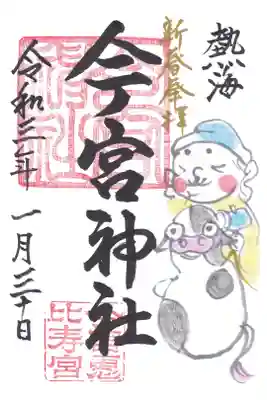 熱海
新春奉拝
今宮神社
令和三年
一月三十日
比寿宮